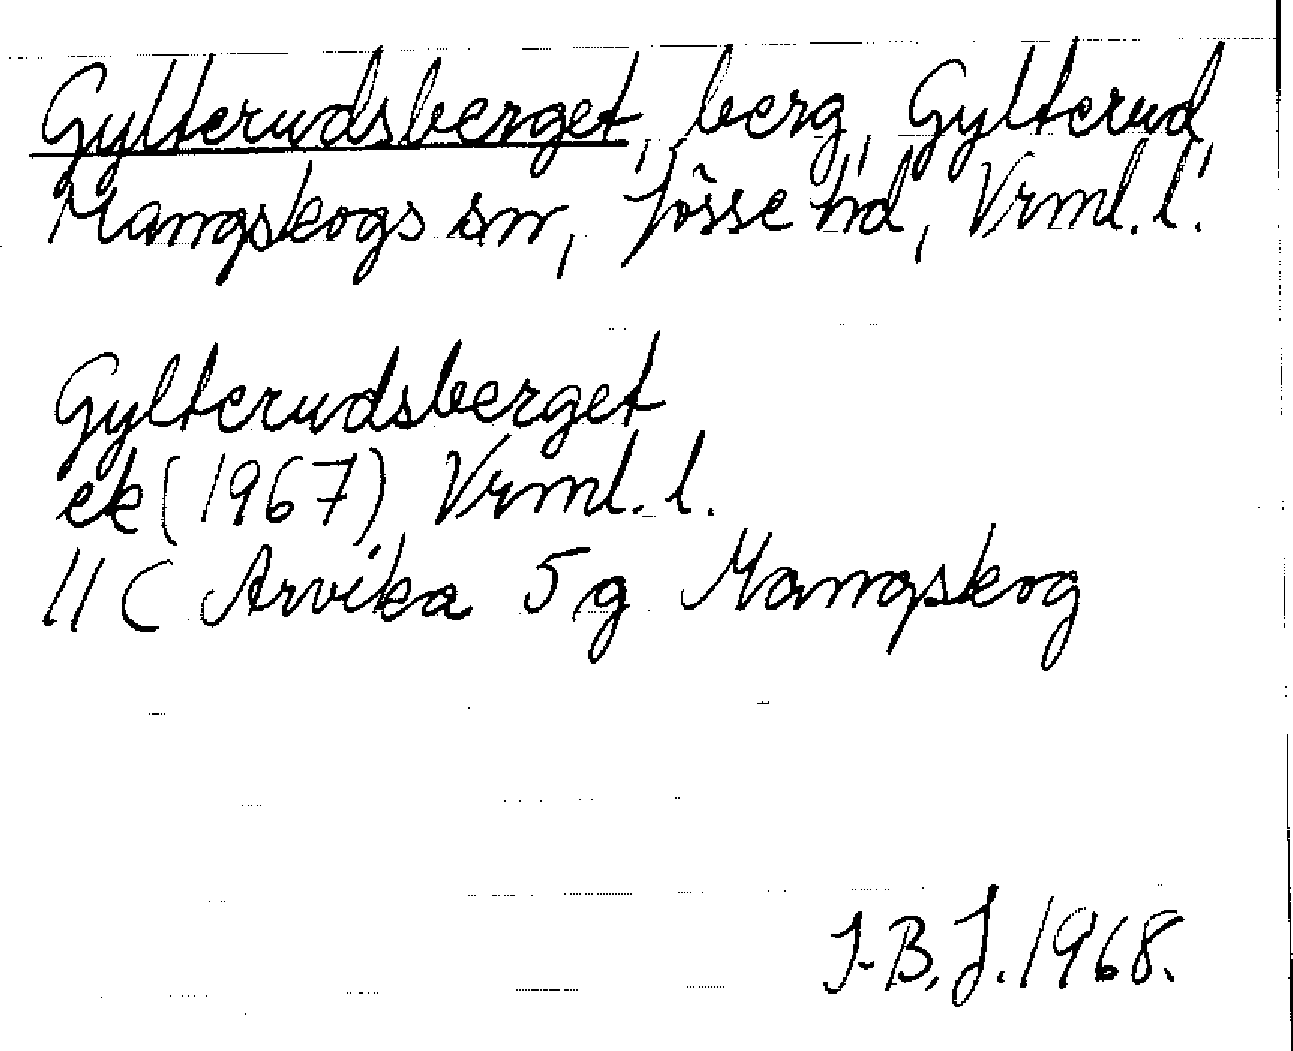 Gylterudsberget, berg, Gylterud,
Mangskogs sn, Jösse hd, Vrml. l.
Gylterudsberget
ek (1967) Vrml. l.
11 C Arvika 5 g Mangskog
I-B. J. 1968.